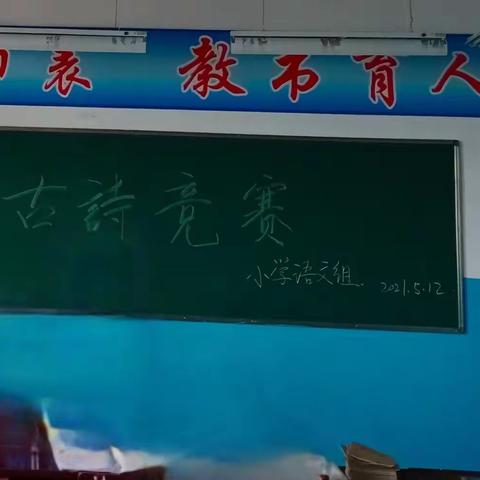 表 教书育人
古詩竞赛
小学语文组. 2021.5.12.